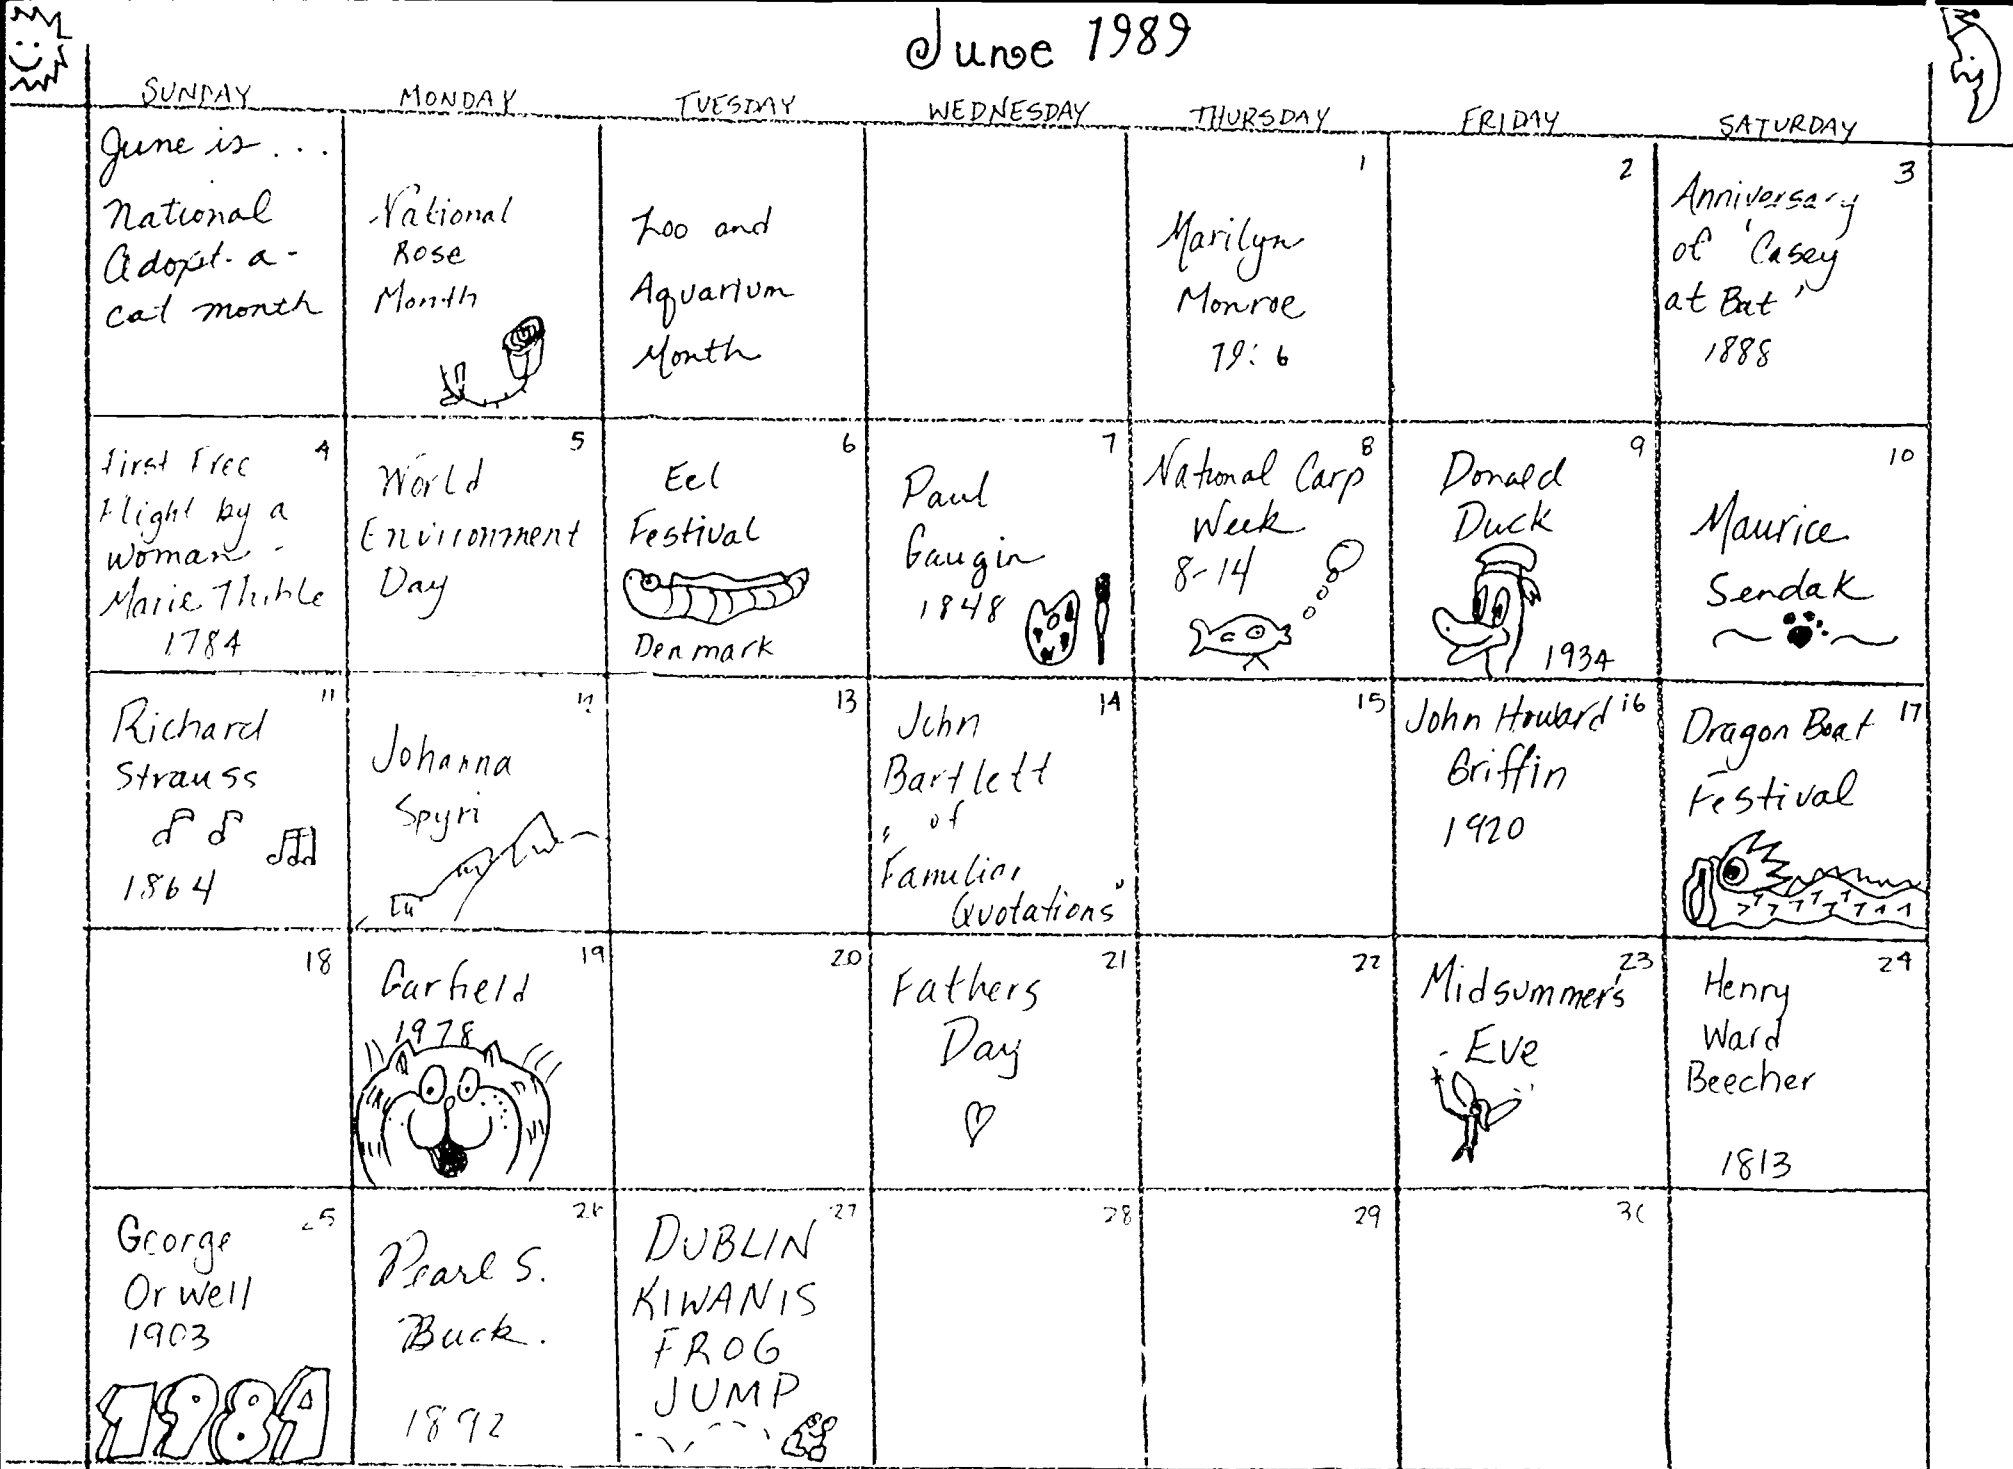 June 1989
SUNDAY MONDAY TUESDAY WEDNESDAY THURSDAY FRIDAY SATURDAY
June is ...
National
Adopt-a-
cat month
National
Rose
Month
Zoo and
Aquarium
Month
1
Marilyn
Monroe
2
3
Anniversary
of 'Casey
at Bat'
1888
4
First Free
Flight by a
woman -
Marie Thible
1784
5
World
Environment
Day
6
Eel
Festival
Denmark
7
Paul
Gaugin
1848
8
National Carp
Week
8-14
9
Donald
Duck
1934
10
Maurice
Sendak
11
Richard
Strauss
1864
12
Johanna
Spyri
13
14
John
Bartlett
of
"Familiar
Quotations"
15
16
John Howard
Griffin
1920
17
Dragon Boat
Festival
18
19
Garfield
1978
20
21
Fathers
Day
22
23
Midsummer's
Eve
24
Henry
Ward
Beecher
1813
25
George
Orwell
1903
1984
26
Pearl S.
Buck.
1892
27
DUBLIN
KIWANIS
FROG
JUMP
28
29
30